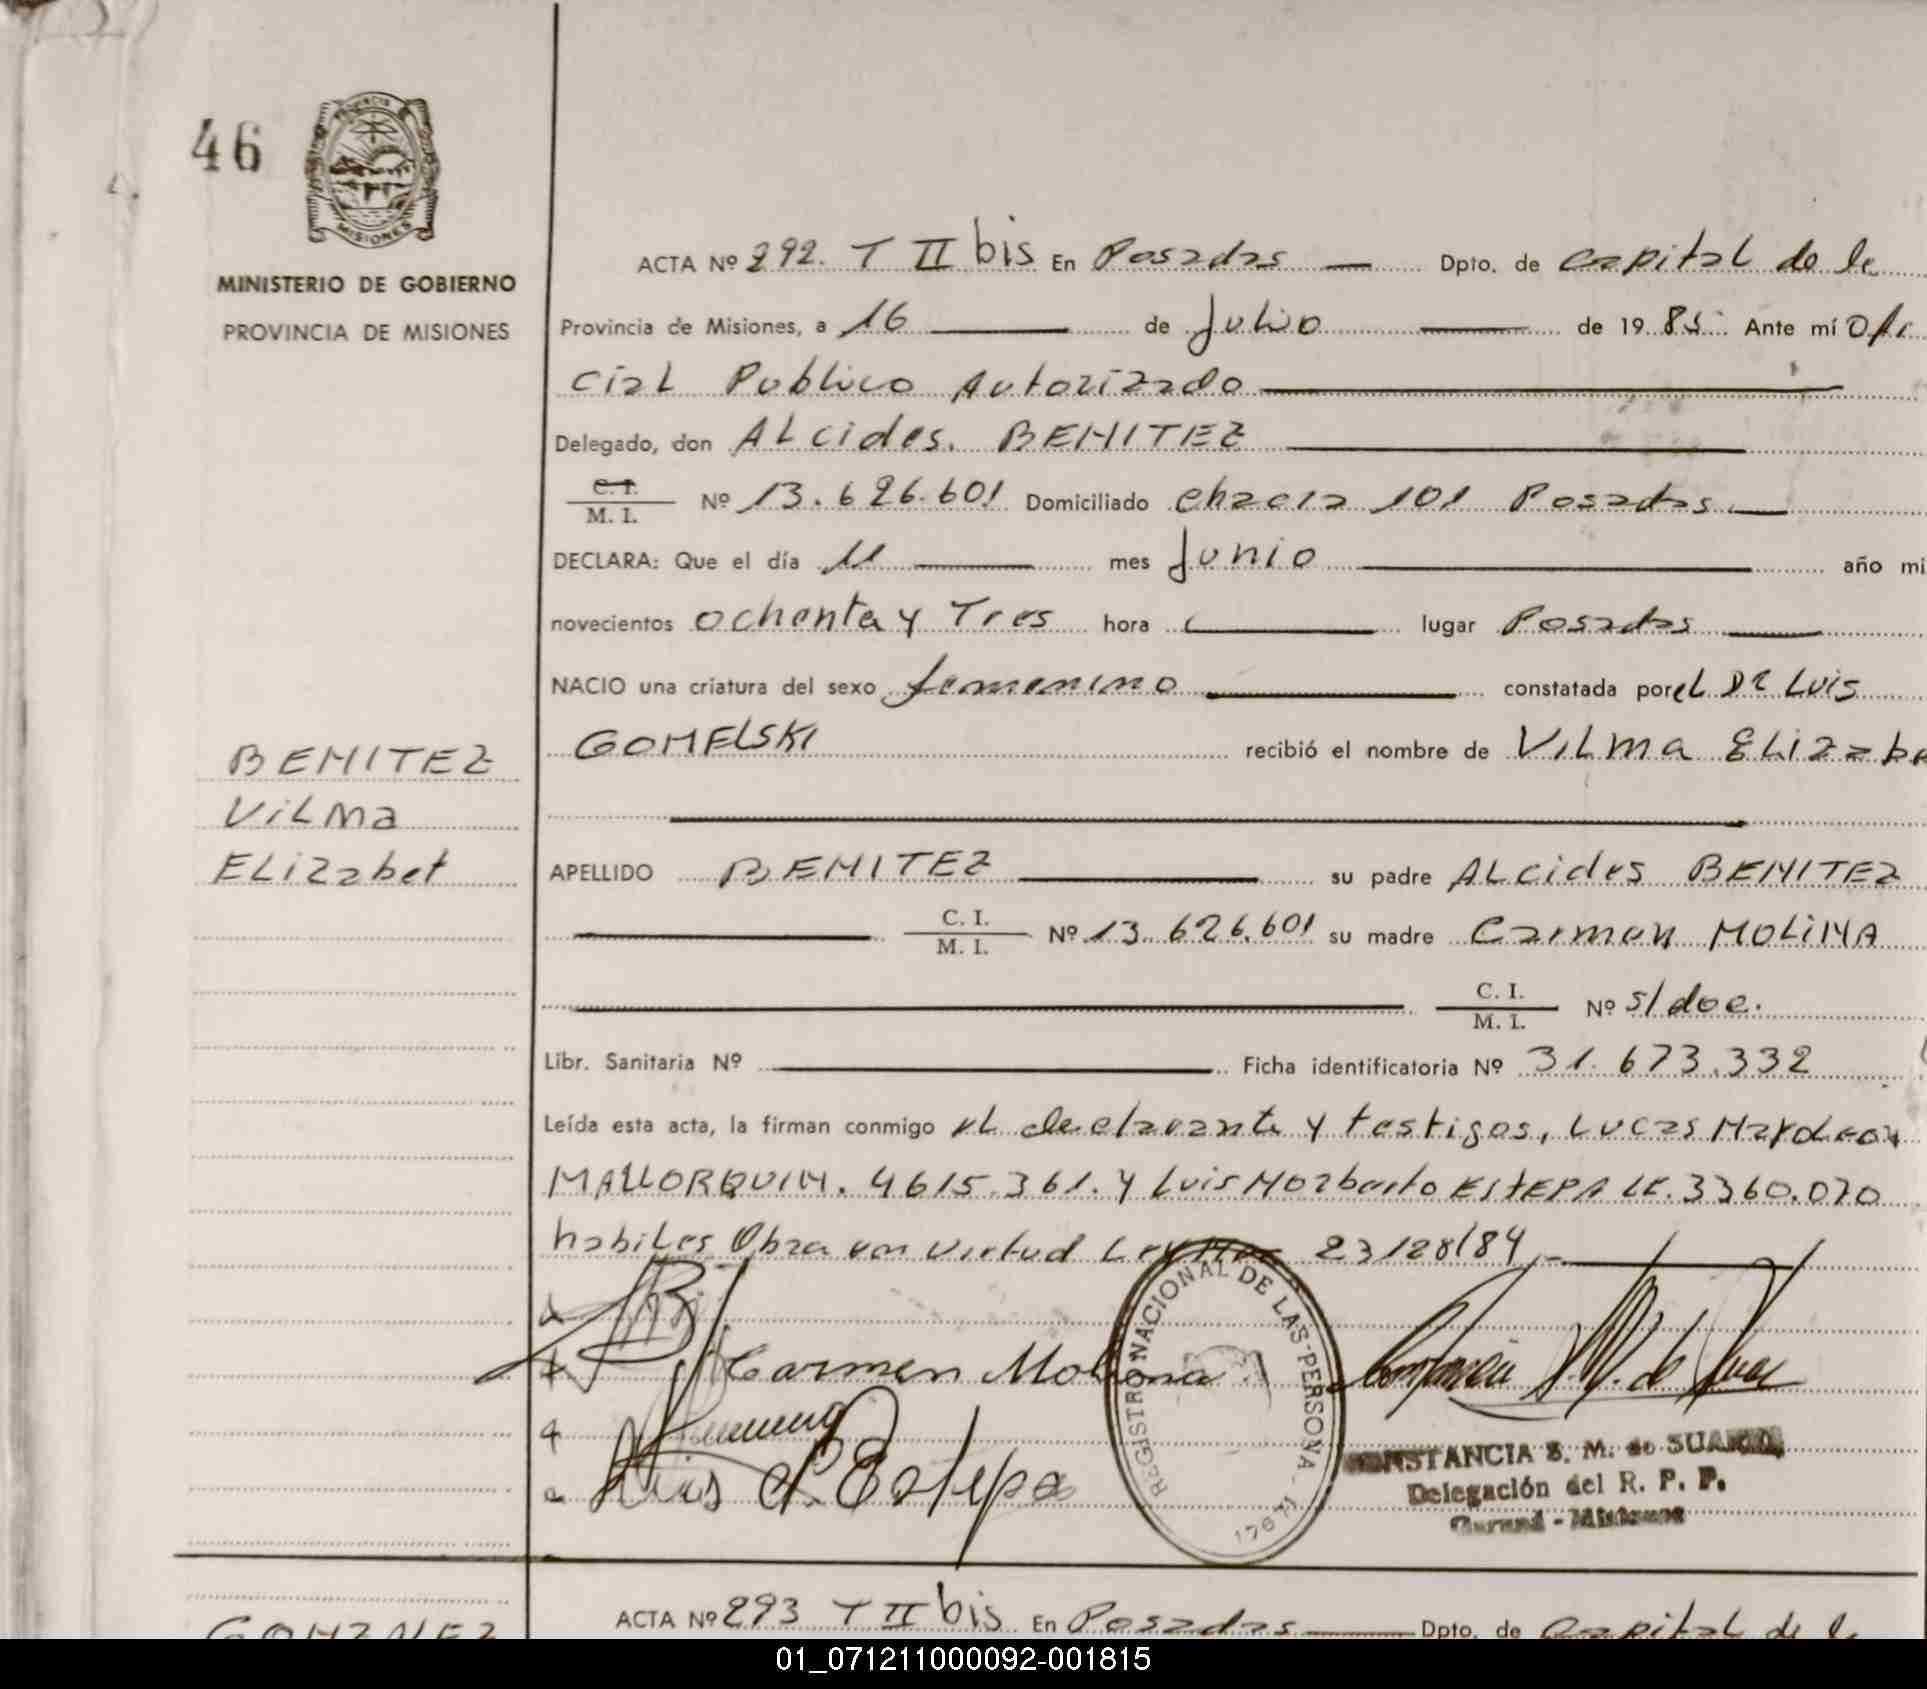 46
PROVINCIA
MISIONES
MINISTERIO DE GOBIERNO
PROVINCIA DE MISIONES
ACTA Nº 292. T II bis En Posadas Dpto. de capital de la
Provincia de Misiones, a 16 de Julio de 1985 Ante mí Ofi
cial Publico Autorizado
Delegado, don ALcides. BENITEZ
C. I.
M. I. Nº 13.626.601 Domiciliado chacra 101 Posadas
DECLARA: Que el día 11 mes Junio año mi
novecientos ochenta y Tres hora lugar Posadas
NACIO una criatura del sexo femenino constatada por el DR Luis
GOMELSKI recibió el nombre de VILma ELizabe
BENITEZ
ViLma
ELizabet
APELLIDO BENITEZ su padre ALcides BENITEZ
C. I.
M. I. Nº 13.626.601 su madre Carmen MOLiNA
C. I.
M. I. Nº s/doc.
Libr. Sanitaria Nº Ficha identificatoria Nº 31.673.332
Leída esta acta, la firman conmigo el declarante y testigos, Lucas
MALLORQUIN. 4615.361. y Luis Norberto EstEPA LE. 3360.070
habiles Obra en virtud Ley Nro 23128/84
Carmen Molina
Luis Estepa
REGISTRO NACIONAL DE LAS PERSONA
17671
CONSTANCIA S. M. de SUAREZ
Delegación del R. P. P.
Misiones
GONZALEZ
ACTA Nº 293 T II bis En Posadas Dpto. de Capital de l
01_071211000092-001815